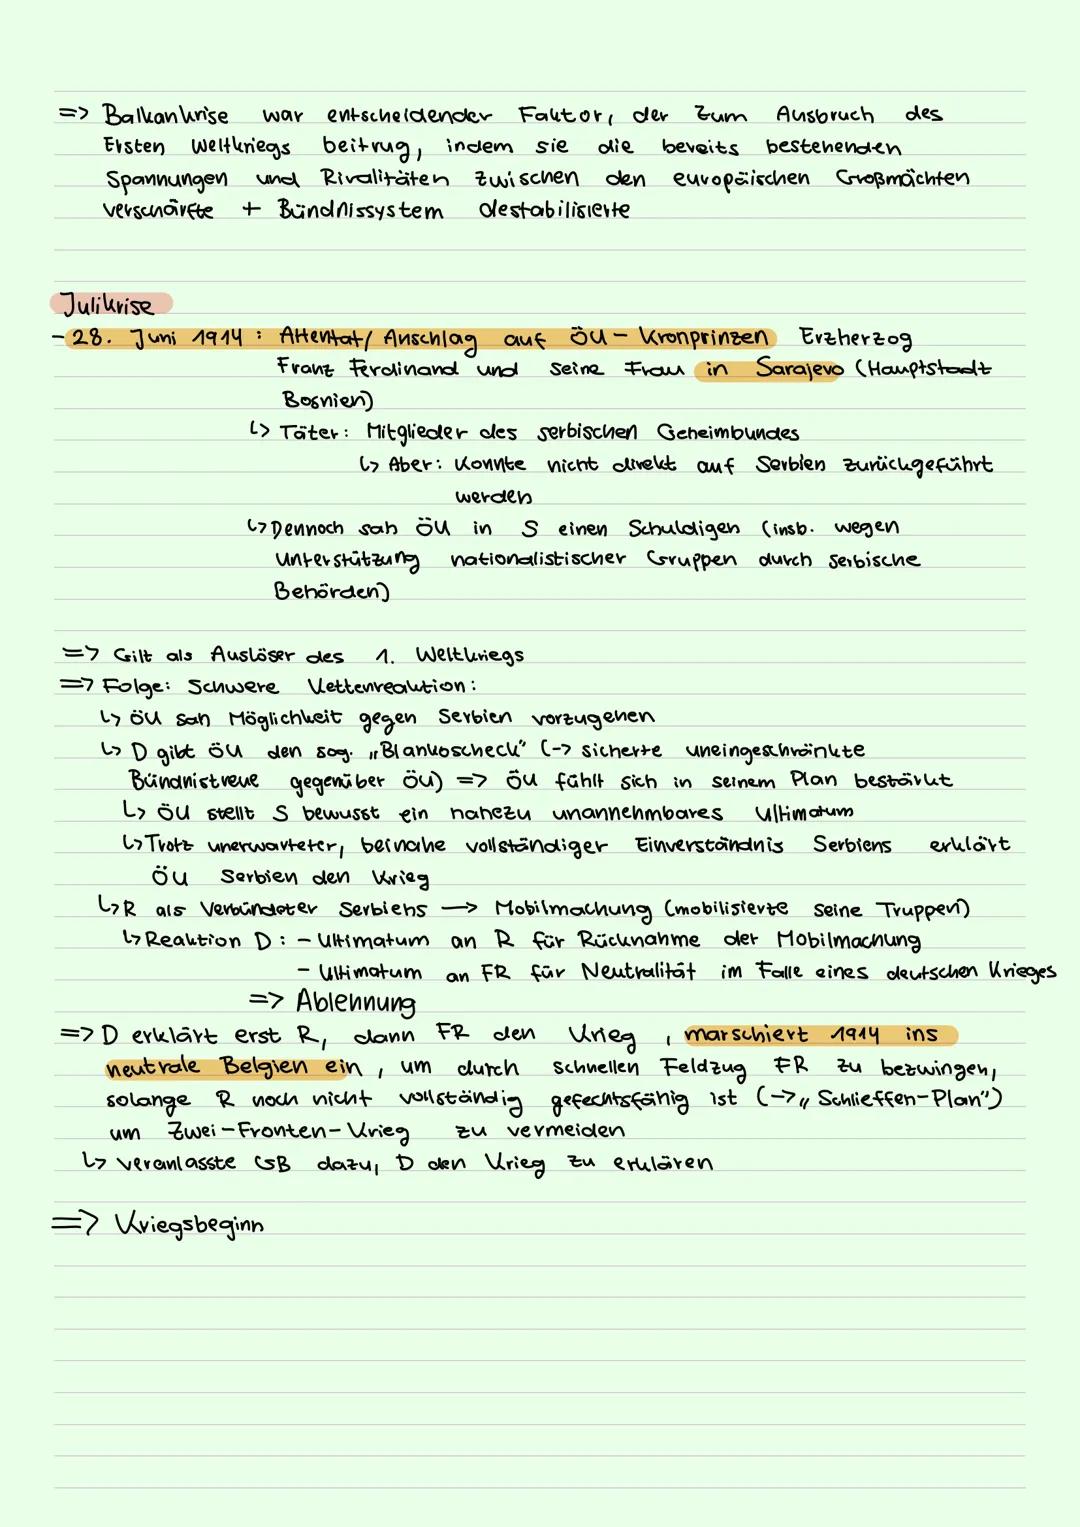 => Balkankrise war entscheidender Faktor, der zum Ausbruch des
Ersten Weltkriegs beitrug, indem sie die bereits bestehenden
Spannungen und Rivalitäten zwischen den europäischen Großmächten
verschärfte + Bündnissystem destabilisierte
Julikrise
- 28. Juni 1914 : Attentat/ Anschlag auf ÖU - Kronprinzen Erzherzog
Franz Ferdinand und seine Frau in Sarajevo (Hauptstadt
Bosnien)
↳ Täter: Mitglieder des serbischen Geheimbundes
↳ Aber: Konnte nicht direkt auf Serbien zurückgeführt
werden
↳ Dennoch sah ÖU in S einen Schuldigen (insb. wegen
Unterstützung nationalistischer Gruppen durch serbische
Behörden)
=> Gilt als Auslöser des 1. Weltkriegs
=> Folge: Schwere Kettenreaktion:
↳ ÖU sah Möglichkeit gegen Serbien vorzugehen
↳ D gibt ÖU den sog. „Blankoscheck" (-> sicherte uneingeschränkte
Bündnistreue gegenüber ÖU) => ÖU fühlt sich in seinem Plan bestärkt
↳ ÖU stellt S bewusst ein nahezu unannehmbares Ultimatum
↳ Trotz unerwarteter, beinahe vollständiger Einverständnis Serbiens erklärt
ÖU Serbien den Krieg
↳ R als Verbündeter Serbiens -> Mobilmachung (mobilisierte seine Truppen)
↳ Reaktion D : - Ultimatum an R für Rücknahme der Mobilmachung
- Ultimatum an FR für Neutralität im Falle eines deutschen Krieges
=> Ablehnung
=> D erklärt erst R, dann FR den Krieg , marschiert 1914 ins
neutrale Belgien ein , um durch schnellen Feldzug FR zu bezwingen,
solange R noch nicht vollständig gefechtsfähig ist (-> „Schlieffen-Plan")
um Zwei-Fronten-Krieg zu vermeiden
↳ veranlasste GB dazu, D den Krieg zu erklären
=> Kriegsbeginn